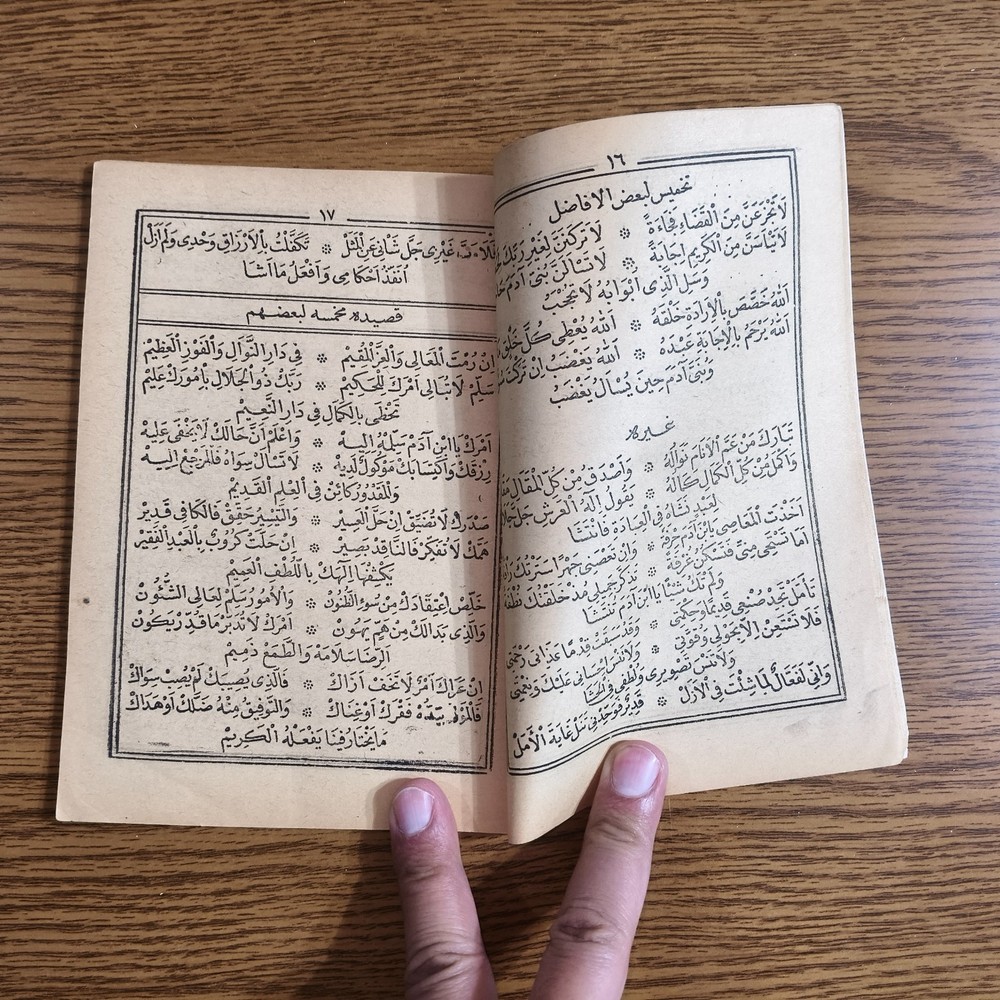 ١٦
تخميس لبعض الافاضل
لَا تَجْزَعَنَّ مِنَ الْقَضَاءِ فَجَاءَةً ❊ لَا تَرْكَنَنَّ لِغَيْرِ رَبِّكَ
لَا تَيْأَسَنَّ مِنَ الْكَرِيمِ اِجَابَةً ❊ لَا تَسْأَلَنَّ بُنَىَّ آدَمَ
وَسَلِ الَّذِى اَبْوَابُهُ لَا تُحْجَبُ
اَللهُ خَصَّصَ بِالْاِرَادَةِ خَلْقَهُ ❊ اَللهُ يُعْطِى كُلَّ خَلْقٍ
اَللهُ يَرْحَمُ بِالْاِجَابَةِ عَبْدَهُ ❊ اَللهُ يَغْضَبُ اِنْ تَرَكْتَ
وَبُنَىَّ آدَمَ حِينَ يُسْأَلُ يَغْضَبُ
غيره
تَبَارَكَ مَنْ عَمَّ الْاَنَامَ نَوَالُهُ ❊ وَاَصْدَقُ مِنْ كُلِّ الْمَقَالِ
وَاَكْمَلُ مِنْ كُلِّ الْكَمَالِ كَمَالُهُ ❊ يَقُولُ اِلَهُ الْعَرْشِ جَلَّ
لِعَبْدٍ نَشَاهُ فِى الْعِبَادَةِ فَانْتَشَا
اَخَذْتَ الْمَعَاصِى يَا ابْنَ آدَمَ حِرْفَةً ❊ وَاِنْ تَعْصِنِى جَهْرًا سَتَرْتُكَ
اَمَا تَسْتَحِى مِنِّى فَتَسْكُنَ غُرْفَةً ❊ تَذَكَّرْ جَمِيلِى مُذْ خَلَقْتُكَ نُطْفَةً
وَلَمْ تَكُ شَيْئًا يَا ابْنَ آدَمَ
تَأَمَّلْ تَجِدْ صُنْعِى قَدِيمًا وَحِكْمَتِى ❊ وَقَدْ سَبَقَتْ قِدْمًا عَذَابِى رَحْمَتِى
فَلَا تَسْتَعِنْ اِلَّا بِحَوْلِى وَقُوَّتِى ❊ وَلَا تَنْسَ اِحْسَانِى عَلَيْكَ وَنِعْمَتِى
وَلَا تَنْسَ تَصْوِيرِى وَلُطْفِى فِى الْحَشَا
وَاِنِّى لَفَعَّالٌ لِمَا شِئْتُ فِى الْاَزَلْ ❊ قَدِيرٌ فَوَحِّدْنِى تَنَلْ غَايَةَ الْاَمَلْ
١٧
غَيْرِى جَلَّ شَانِى عَنِ الْمَثَلْ ❊ تَكَفَّلْتُ بِالْاَرْزَاقِ وَحْدِى وَلَمْ اَزَلْ
اُنَفِّذُ اَحْكَامِى وَاَفْعَلُ مَا اَشَا
قصيده مخمسه لبعضهم
اِنْ رُمْتَ الْمَعَالِى وَالْعِزَّ الْمُقِيمْ ❊ فِى دَارِ النَّوَالِ وَالْفَوْزِ الْعَظِيمْ
سَلِّمْ لَا تُبَالِى اَمْرَكَ لِلْحَكِيمْ ❊ رَبُّكَ ذُو الْجَلَالِ بِاُمُورِكَ عَلِيمْ
تَحْظَى بِالْكَمَالِ فِى دَارِ النَّعِيمْ
اَمْرَكْ يَا ابْنَ آدَمْ سَلِّمْهُ اِلَيْهْ ❊ وَاعْلَمْ اَنَّ حَالَكْ لَا يَخْفَى عَلَيْهْ
رِزْقَكْ وَاكْتِسَابَكْ مَوْكُولْ لَدَيْهْ ❊ لَا تَسْأَلْ سِوَاهْ فَالْمَرْجَعْ اِلَيْهْ
وَالْمَقْدُورْ كَائِنْ فِى الْعِلْمِ الْقَدِيمْ
صَدْرَكْ لَا تُضَيِّقْ اِنْ حَلَّ الْعَسِيرْ ❊ وَالتَّيْسِيرْ حَقِّقْ فَالْكَافِى قَدِيرْ
هَمَّكْ لَا تُفَكِّرْ فَالنَّاقِدْ بَصِيرْ ❊ اِنْ حَلَّتْ كُرُوبْ بِالْعَبْدِ الْفَقِيرْ
يَكْشِفْهَا اِلَهُكْ بِاللُّطْفِ الْعَمِيمْ
خَلِّصْ اِعْتِقَادَكْ مِنْ سُوءِ الظُّنُونْ ❊ وَالْاُمُورْ سَلِّمْ لِعَالِى الشُّئُونْ
وَالَّذِى بَدَا لَكْ مِنْ هَمٍّ يَهُونْ ❊ اَمْرَكْ لَا تُدَبِّرْ مَا قُدِّرْ يَكُونْ
اَلرِّضَا سَلَامَهْ وَالطَّمَعْ ذَمِيمْ
اِنْ عَرَاكَ اَمْرْ لَا تَخَفْ اَرَاكْ ❊ فَالَّذِى يُصِيبَكْ لَمْ يُصِبْ سِوَاكْ
فَقْرَكْ اَوْ غِنَاكْ ❊ وَالتَّوْفِيقْ مِنْهُ ضَلَّكْ اَوْ هَدَاكْ
مَا يَخْتَارْ فِينَا يَفْعَلُهُ الْكَرِيمْ